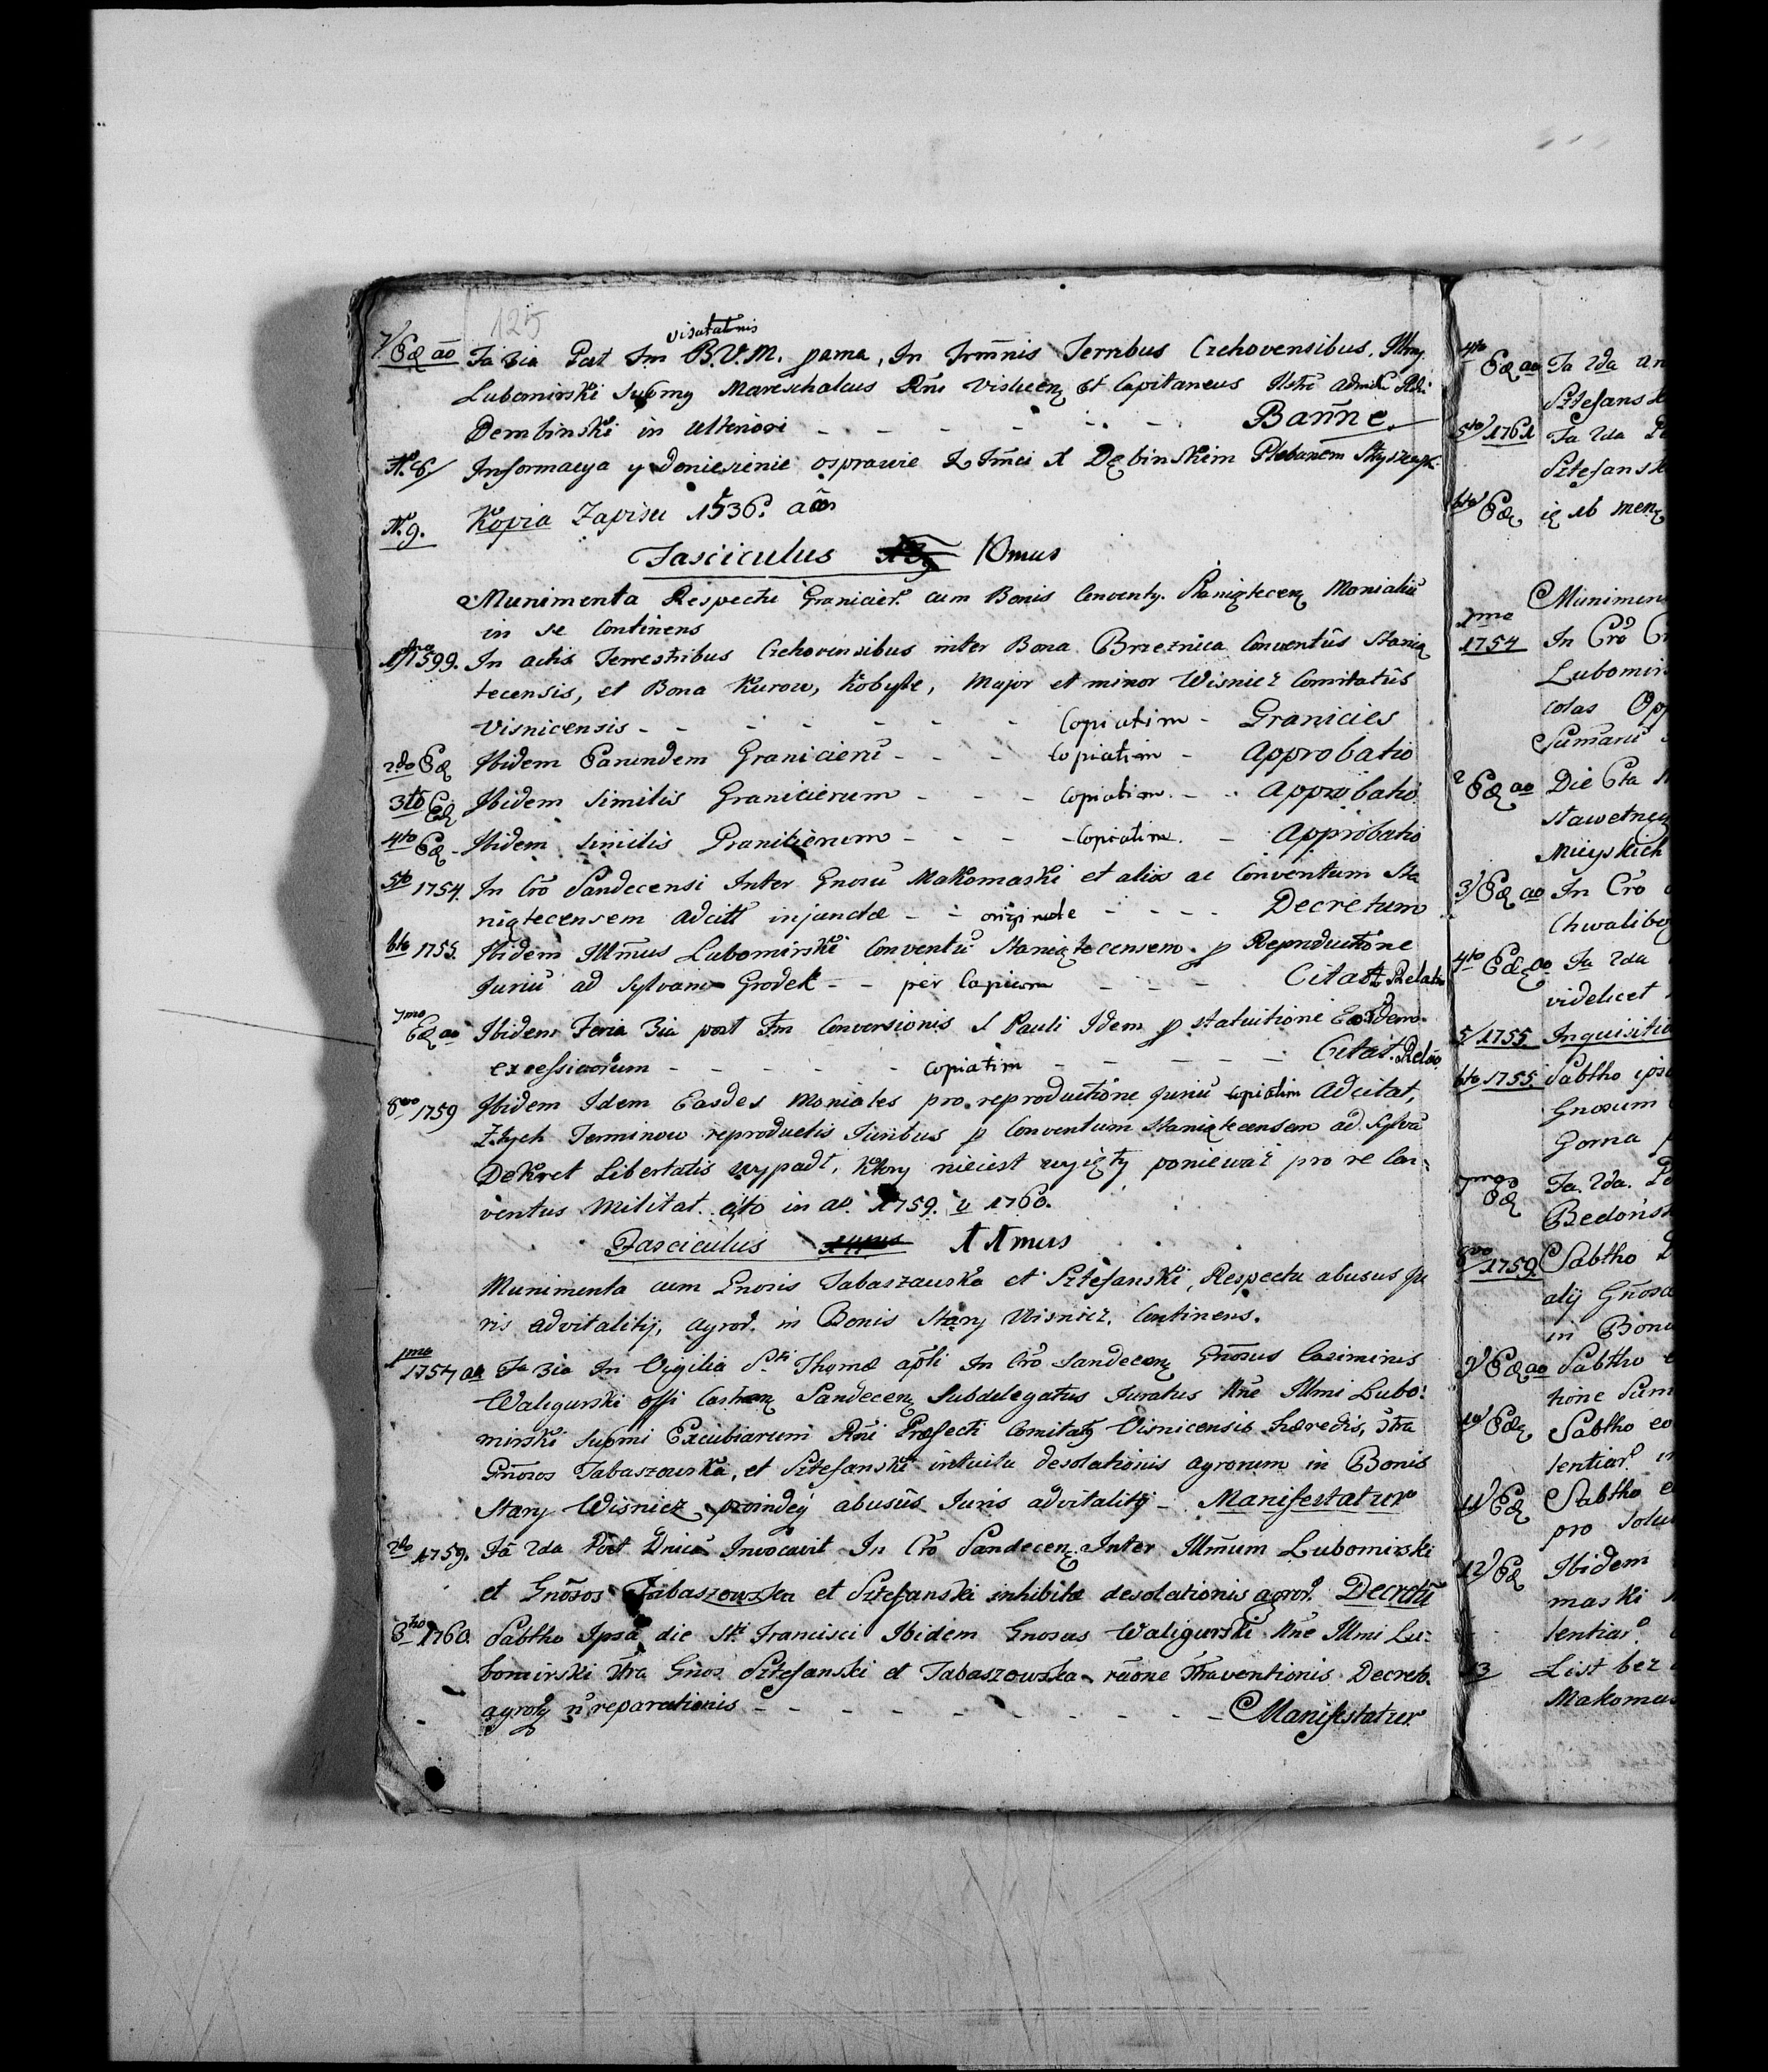 125
7/ Eod ao Fa 3ia Post Fm visitationis B.V.M. pama, In Trmnis Terribus Czchovensibus, Illmy
Lubomirski Supmy Mareschalcus Rni Vislicen et Capitaneus
Dembinski in ulteriori - - - - - - Banne
N. 8/ Informacya y doniesienie osprawie z Jmci X Dębinskim Plebanem
N. 9. Kopia Zapisu 1536. ao
Fasciculus 10mus
Munimenta Respectu Granicier. cum Bonis Conventy. Staniątecen Monialiu
in se Continens
1mo 1599. In actis Terrestribus Czchoviensibus inter Bona Brzeznica Conventûs Stanią
tecensis, et Bona Kurow, Kobyle, Major et minor Wisnicz Comitatûs
Visnicensis - - - - - - Copiatim - Granicies
2do Eod Ibidem Earundem Granicierū - - - Copiatim - Approbatio
3tio Eod Ibidem Similis Granicierum - - - Copiatim - - Approbatio
4to Eod - Ibidem Similis Granicierum - - - - Copiatim. - Approbatio
5to 1754. In Cro Sandecensi Inter Gnosū Makomaski et alios ac Conventum Sta
niątecensem adcitt injunctæ - - originale - - - - Decretum
6to 1755. Ibidem Illmus Lubomirski Conventū Staniątecensem p Reproductione
Juriū ad Sylvam Grodek - - per Copiam - - - Citatt Relatio
7mo Eod ao Ibidem Feria 3ia post Fm Conversionis S Pauli Idem p statuitione Eordem
excessivorum - - - - - - Copiatim - - - - - Citat. Relão
8vo 1759 Ibidem Idem Easdes Moniales pro reproductione Juriū Copiatim Adcitat,
Ztych Terminow reproductis Juribus p Conventum Staniątecensem ad Sylvā
Dekret Libertatis wypadł, ktory nieiest wyięty poniewaz pro re Con=
ventus Militat. ato in ao. 1759. y 1760.
Fasciculus 11mus
Munimenta cum Gnosis Tabaszowska et Sztefanski, Respectu abusus Ju
ris advitalitij, agror. in Bonis Stary Wisnicz, Continens.
1mo 1754 ao Fa 3ia In Vigilia Sti Thomæ apli In Cro Sandecen Gnosus Casimirus
Waligurski offi Castren Sandecen Subdelegatus Juratus nne Illmi Lubo=
mirski Supmi Excubiarum Rni Præfecti Comitaty Visnicensis hæredis, ctra
Gnosos Tabaszowska, et Sztefanski intuitu desolationis agrorum in Bonis
Stary Wisnicz proindeq abusûs Juris advitalitij - Manifestatur
2do 1759. Fa 2da Post Dnicā Invocavit In Cro Sandecen Inter Illmum Lubomirski
et Gnosos Tabaszowska et Sztefanski inhibitæ desolationis agror. Decretū
3tio 1760. Sabtho Ipsa die Sti Francisci Ibidem Gnosus Waligurski nne Illmi Lu=
bomirski ctra Gnos Sztefanski et Tabaszowska raone ctraventionis Decreto.
agrorq n reparationis - - - - - - - - - Manifestatur
4to Eod ao Fa 2da
Sztefansk
5to 1761 Fa 2da
Sztefansk
6to Eod
Munimen
1mo 1754 In Cro
Lubomir
colas
Sumarū
2 Eod ao Die 6ta
Mieyskich
3/ Eod ao In Cro
Chwalibog
4to Eod ao Fa 2da
videlicet
5/ 1755. Inquisitio
6to 1755 Sabtho ipso
Gnosum
Gorna
7mo Eod Fa 2da.
Bedonsk
8vo 1759 Sabtho
alij Gnosa
in Bon
9/ Eod ao Sabtho
tione Sum
10/ Eod Sabtho eo
tentiar.
11/ Eod Sabtho
pro solu
12/ Eod Ibidem
maski
tentiar.
13 List bez
Makomas